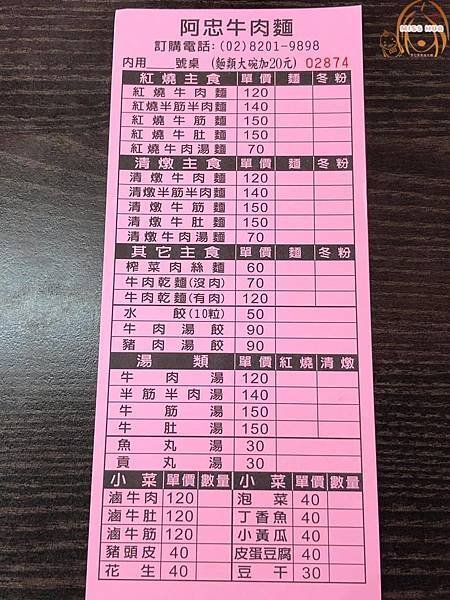 MISS HUA
阿忠牛肉麵
訂購電話:(02)8201-9898
內用 號桌 (麵類大碗加20元) 02874
紅燒主食 單價 麵 冬粉
紅燒牛肉麵 120
紅燒半筋半肉麵 140
紅燒牛筋麵 150
紅燒牛肚麵 150
紅燒牛肉湯麵 70
清燉主食 單價 麵 冬粉
清燉牛肉麵 120
清燉半筋半肉麵 140
清燉牛筋麵 150
清燉牛肚麵 150
清燉牛肉湯麵 70
其它主食 單價 麵 冬粉
榨菜肉絲麵 60
牛肉乾麵(沒肉) 70
牛肉乾麵(有肉) 120
水餃(10粒) 50
牛肉湯餃 90
豬肉湯餃 90
湯類 單價 紅燒 清燉
牛肉湯 120
半筋半肉湯 140
牛筋湯 150
牛肚湯 150
魚丸湯 30
貢丸湯 30
小菜 單價 數量 小菜 單價 數量
滷牛肉 120 泡菜 40
滷牛肚 120 丁香魚 40
滷牛筋 120 小黃瓜 40
豬頭皮 40 皮蛋豆腐 40
花生 40 豆干 30